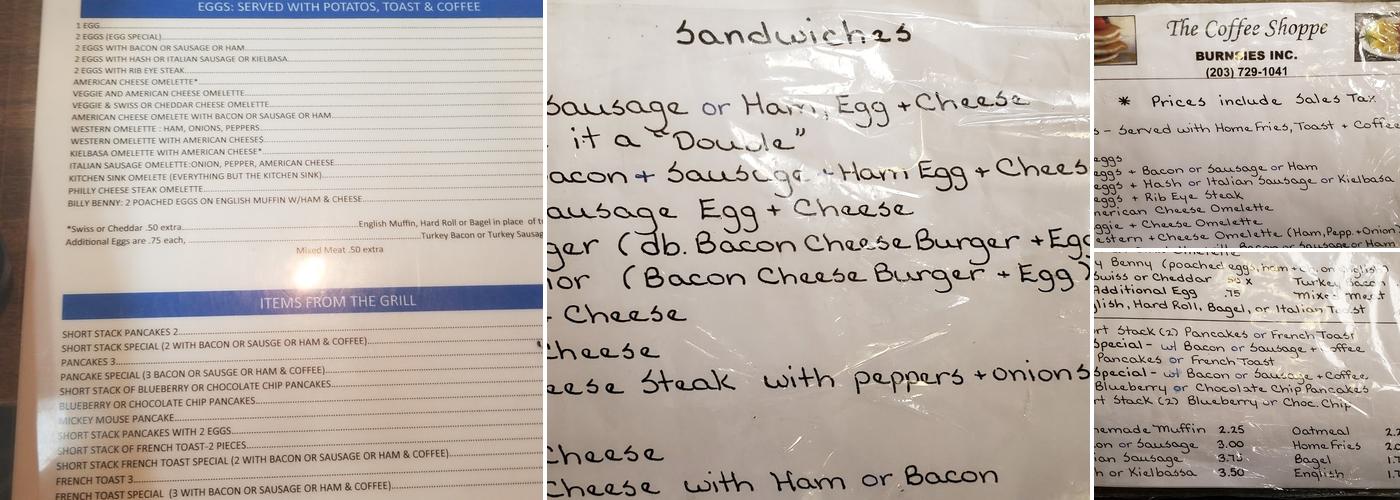 EGGS: SERVED WITH POTATOS, TOAST & COFFEE
1 EGG
2 EGGS (EGG SPECIAL)
2 EGGS WITH BACON OR SAUSAGE OR HAM
2 EGGS WITH HASH OR ITALIAN SAUSAGE OR KIELBASA
2 EGGS WITH RIB EYE STEAK
AMERICAN CHEESE OMELETTE*
VEGGIE AND AMERICAN CHEESE OMELETTE
VEGGIE & SWISS OR CHEDDAR CHEESE OMELETTE
AMERICAN CHEESE OMLETE WITH BACON OR SAUSAGE OR HAM
WESTERN OMELETTE : HAM, ONIONS, PEPPERS
WESTERN OMELETTE WITH AMERICAN CHEESE
KIELBASA OMELETTE WITH AMERICAN CHEESE*
ITALIAN SAUSAGE OMELETTE:ONION, PEPPER, AMERICAN CHEESE
KITCHEN SINK OMELETE (EVERYTHING BUT THE KITCHEN SINK)
PHILLY CHEESE STEAK OMELETTE
BILLY BENNY: 2 POACHED EGGS ON ENGLISH MUFFIN W/HAM & CHEESE
*Swiss or Cheddar .50 extra English Muffin, Hard Roll or Bagel in place of
Additional Eggs are .75 each, Turkey Bacon or Turkey Sausag
Mixed Meat .50 extra
ITEMS FROM THE GRILL
SHORT STACK PANCAKES 2
SHORT STACK SPECIAL (2 WITH BACON OR SAUSGE OR HAM & COFFEE)
PANCAKES 3
PANCAKE SPECIAL (3 BACON OR SAUSGE OR HAM & COFFEE)
SHORT STACK OF BLUEBERRY OR CHOCOLATE CHIP PANCAKES
BLUEBERRY OR CHOCOLATE CHIP PANCAKES
MICKEY MOUSE PANCAKE
SHORT STACK PANCAKES WITH 2 EGGS
SHORT STACK OF FRENCH TOAST-2 PIECES
SHORT STACK FRENCH TOAST SPECIAL (2 WITH BACON OR SAUSAGE OR HAM & COFFEE)
FRENCH TOAST 3
FRENCH TOAST SPECIAL (3 WITH BACON OR SAUSAGE OR HAM & COFFEE)
Sandwiches
Sausage or Ham, Egg + Cheese
it a "Double"
acon + Sausage + Ham Egg + Chees
ausage Egg + Cheese
ger (db. Bacon Cheese Burger + Egg
ior (Bacon Cheese Burger + Egg)
Cheese
Cheese
eese Steak with peppers + onions
Cheese
Cheese with Ham or Bacon
The Coffee Shoppe
BURNSIES INC.
(203) 729-1041
* Prices include Sales Tax
s - Served with Home Fries, Toast + Coffee
eggs
eggs + Bacon or Sausage or Ham
eggs + Hash or Italian Sausage or Kielbasa
eggs + Rib Eye Steak
merican Cheese Omelette
ggie + Cheese Omelette
estern + Cheese Omelette (Ham, Pepp. + Onion)
Bacon or Sausage or Ham
y Benny (poached eggs, ham + ch. on english)
Swiss or Cheddar Turkey Bacon
Additional Egg .75 mixed meat
lish, Hard Roll, Bagel, or Italian Toast
rt Stack (2) Pancakes or French Toast
Special - w/ Bacon or Sausage + Coffee
Pancakes or French Toast
Special - w/ Bacon or Sausage + Coffee
Blueberry or Chocolate Chip Pancakes
rt Stack (2) Blueberry or Choc. Chip
emade Muffin 2.25 Oatmeal 2.2
on or Sausage 3.00 Home Fries 2.0
ian Sausage 3.75 Bagel 1.7
h or Kielbassa 3.50 English 1.7